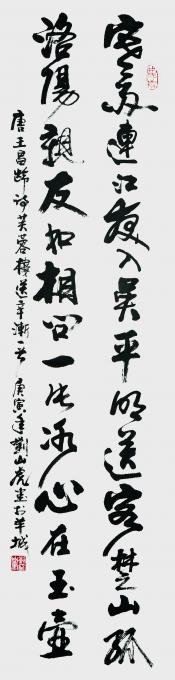 寒雨連江夜入吳平明送客楚山孤
洛陽親友如相問一片冰心在玉壺
唐王昌齡詩芙蓉樓送辛漸一首 庚寅年劉山虎書於羊城